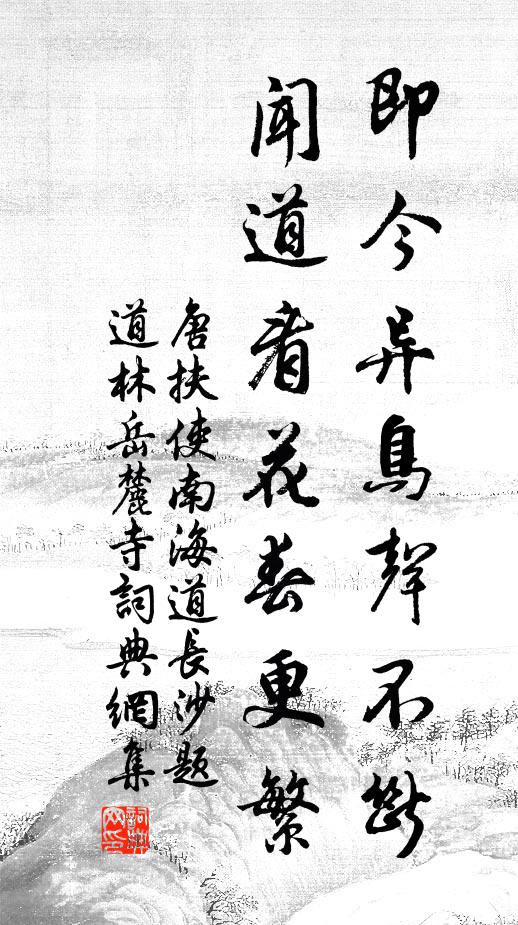 即今异鳥聲不斷
聞道看花春更繁
唐扶使南海道長沙題
道林岳麓寺詞典網集